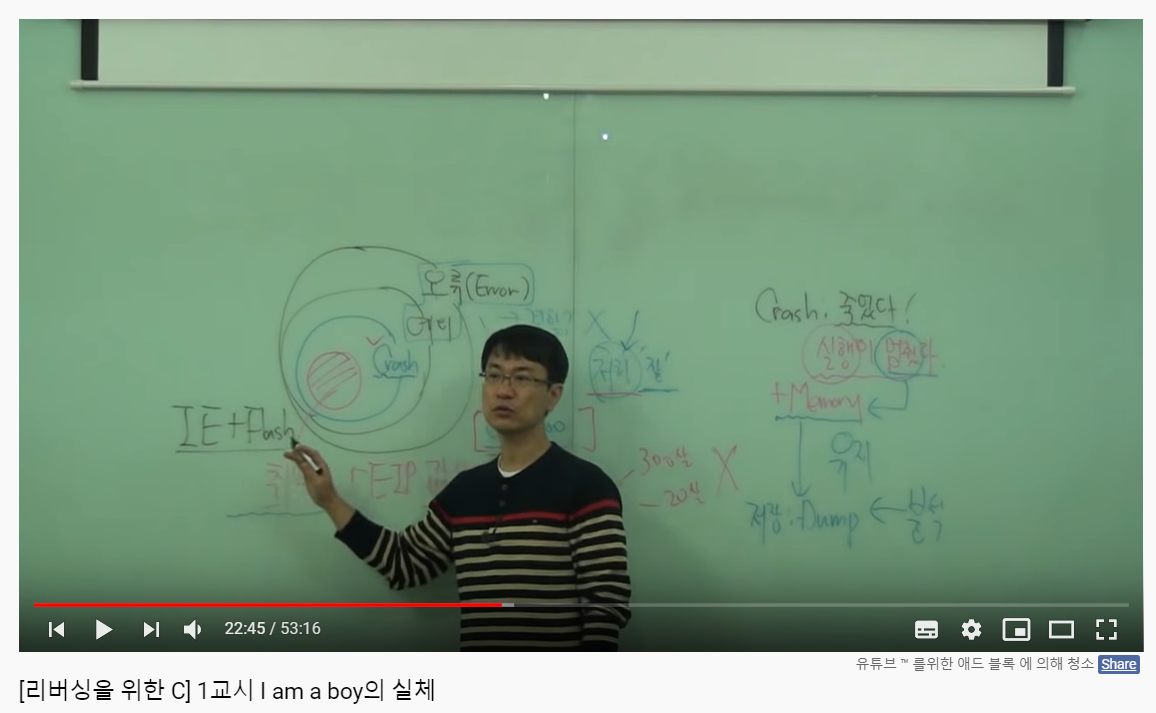 오류(Error)
에러
Crash
IE+Flash
EIP
처리 '잘'
300살
20살
Crash. 죽었다!
실행이 멈췄다.
+Memory
유지
저장:Dump ← 분석
22:45 / 53:16
유튜브 ™ 를위한 애드 블록 에 의해 청소 Share
[리버싱을 위한 C] 1교시 I am a boy의 실체